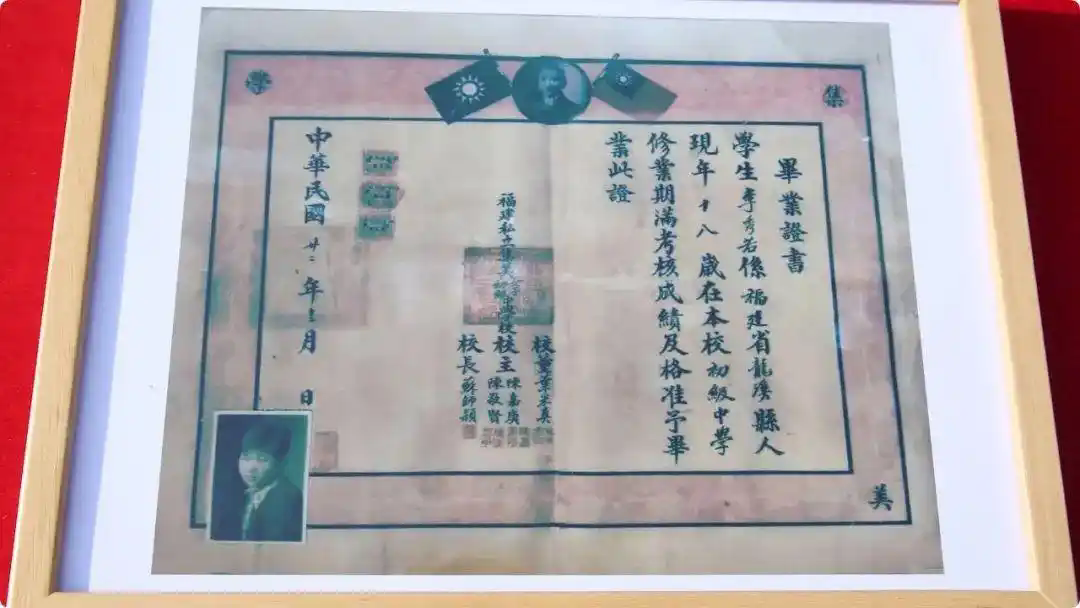 學
集
美
畢業證書
學生李秀若係福建省龍溪縣人
現年十八歲在本校初級中學
修業期滿考核成績及格准予畢
業此證
校董葉采真
福建私立集美學校
校主陳嘉庚
陳敬賢
校長蘇師穎
中華民國廿二年十二月 日